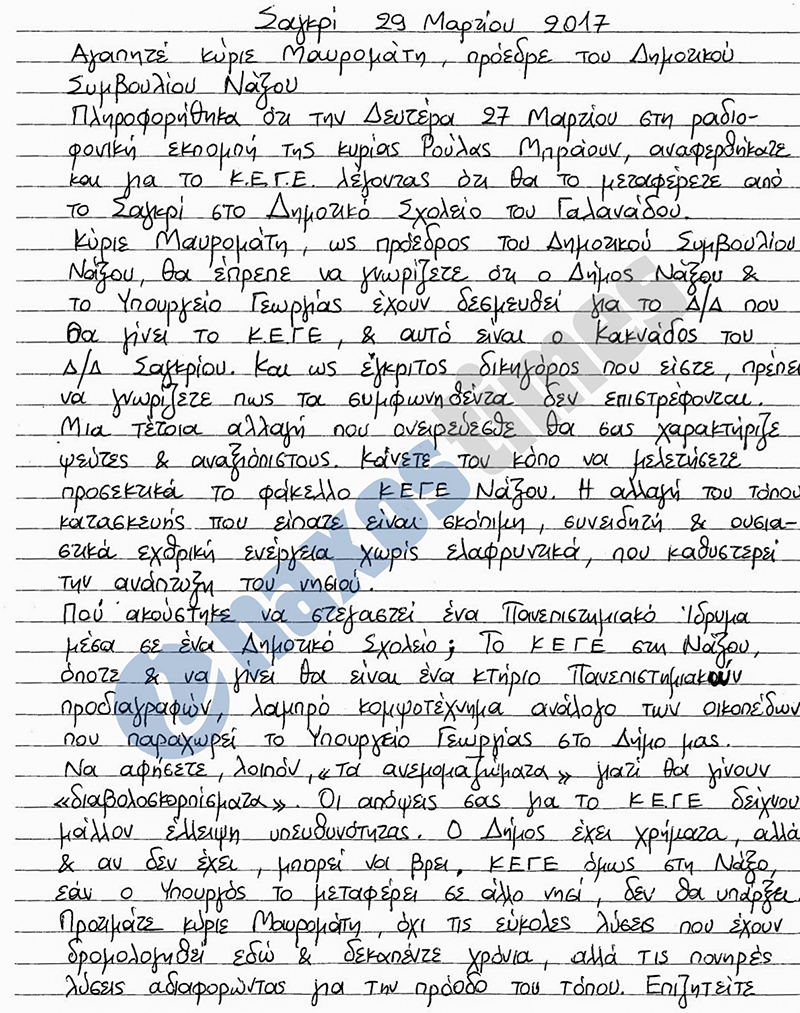 Σαγκρί 29 Μαρτίου 2017
Αγαπητέ κύριε Μαυρομάτη, πρόεδρε του Δημοτικού
Συμβουλίου Νάξου
Πληροφορήθηκα ότι την Δευτέρα 27 Μαρτίου στη ραδιο-
φωνική εκπομπή της κυρίας Ρούλας Μπράουν, αναφερθήκατε
και για το Κ.Ε.Γ.Ε. λέγοντας ότι θα το μεταφέρετε από
το Σαγκρί στο Δημοτικό Σχολείο του Γαλανάδου.
Κύριε Μαυρομάτη, ως πρόεδρος του Δημοτικού Συμβουλίου
Νάξου, θα έπρεπε να γνωρίζετε ότι ο Δήμος Νάξου &
το Υπουργείο Γεωργίας έχουν δεσμευθεί για το Δ/Δ που
θα γίνει το Κ.Ε.ΓΕ, & αυτό ειναι ο Κακνάδος του
Δ/Δ Σαγκρίου. Και ως έγκριτος δικηγόρος που είστε, πρέπει
να γνωρίζετε πως τα συμφωνηθέντα δεν επιστρέφονται.
Μια τέτοια αλλαγή που ονειρεύεσθε θα σας χαρακτήριζε
ψεύτες & αναξιόπιστους. Κάνετε τον κόπο να μελετήσετε
προσεκτικά το φάκελλο ΚΕΓΕ Νάξου. Η αλλαγή του τόπου
κατασκευής που είπατε είναι σκόπιμη, συνειδητή & ουσια-
στικά εχθρική ενέργεια χωρίς ελαφρυντικά, που καθυστερεί
την ανάπτυξη του νησιού.
Πού ακούστηκε να στεγαστεί ένα Πανεπιστημιακό Ίδρυμα
μέσα σε ένα Δημοτικό Σχολείο; Το ΚΕΓΕ στη Νάξου,
όποτε & να γίνει θα είναι ένα κτήριο Πανεπιστημιακών
προδιαγραφών, λαμπρό κομψοτέχνημα ανάλογο των οικοπέδων
που παραχωρεί το Υπουργείο Γεωργίας στο Δήμο μας.
Να αφήσετε, λοιπόν, «τα ανεμομαζώματα» γιατί θα γίνουν
«διαβολοσκορπίσματα». Οι απόψεις σας για το ΚΕΓΕ δείχνου
μάλλον έλλειψη υπευθυνότητας. Ο Δήμος έχει χρήματα, αλλά
& αν δεν έχει, μπορεί να βρει. ΚΕΓΕ όμως στη Νάξο,
εάν ο Υπουργός το μεταφέρει σε άλλο νησί, δεν θα υπάρξει.
Προτιμάτε κύριε Μαυρομάτη, όχι τις εύκολες λύσεις που έχουν
δρομολογηθεί εδώ & δεκαπέντε χρόνια, αλλά τις πονηρές
λύσεις αδιαφορώντας για την πρόοδο του τόπου. Επιζητείτε
naxostimes